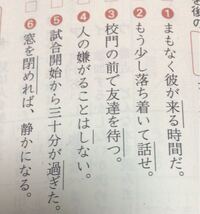 ❶まもなく彼が来る時間だ。
❷もう少し落ち着いて話せ。
❸校門の前で友達を待つ。
❹人の嫌がることはしない。
❺試合開始から三十分が過ぎた。
❻窓を閉めれば、静かになる。